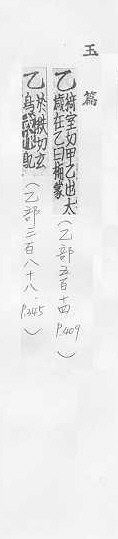 玉篇
乙猗室切甲乙也太歲在乙曰旃蒙
(乙部五百十四 P.409)
乙於秩切玄鳥或作鳦
(乙部三百八十八. P.345)